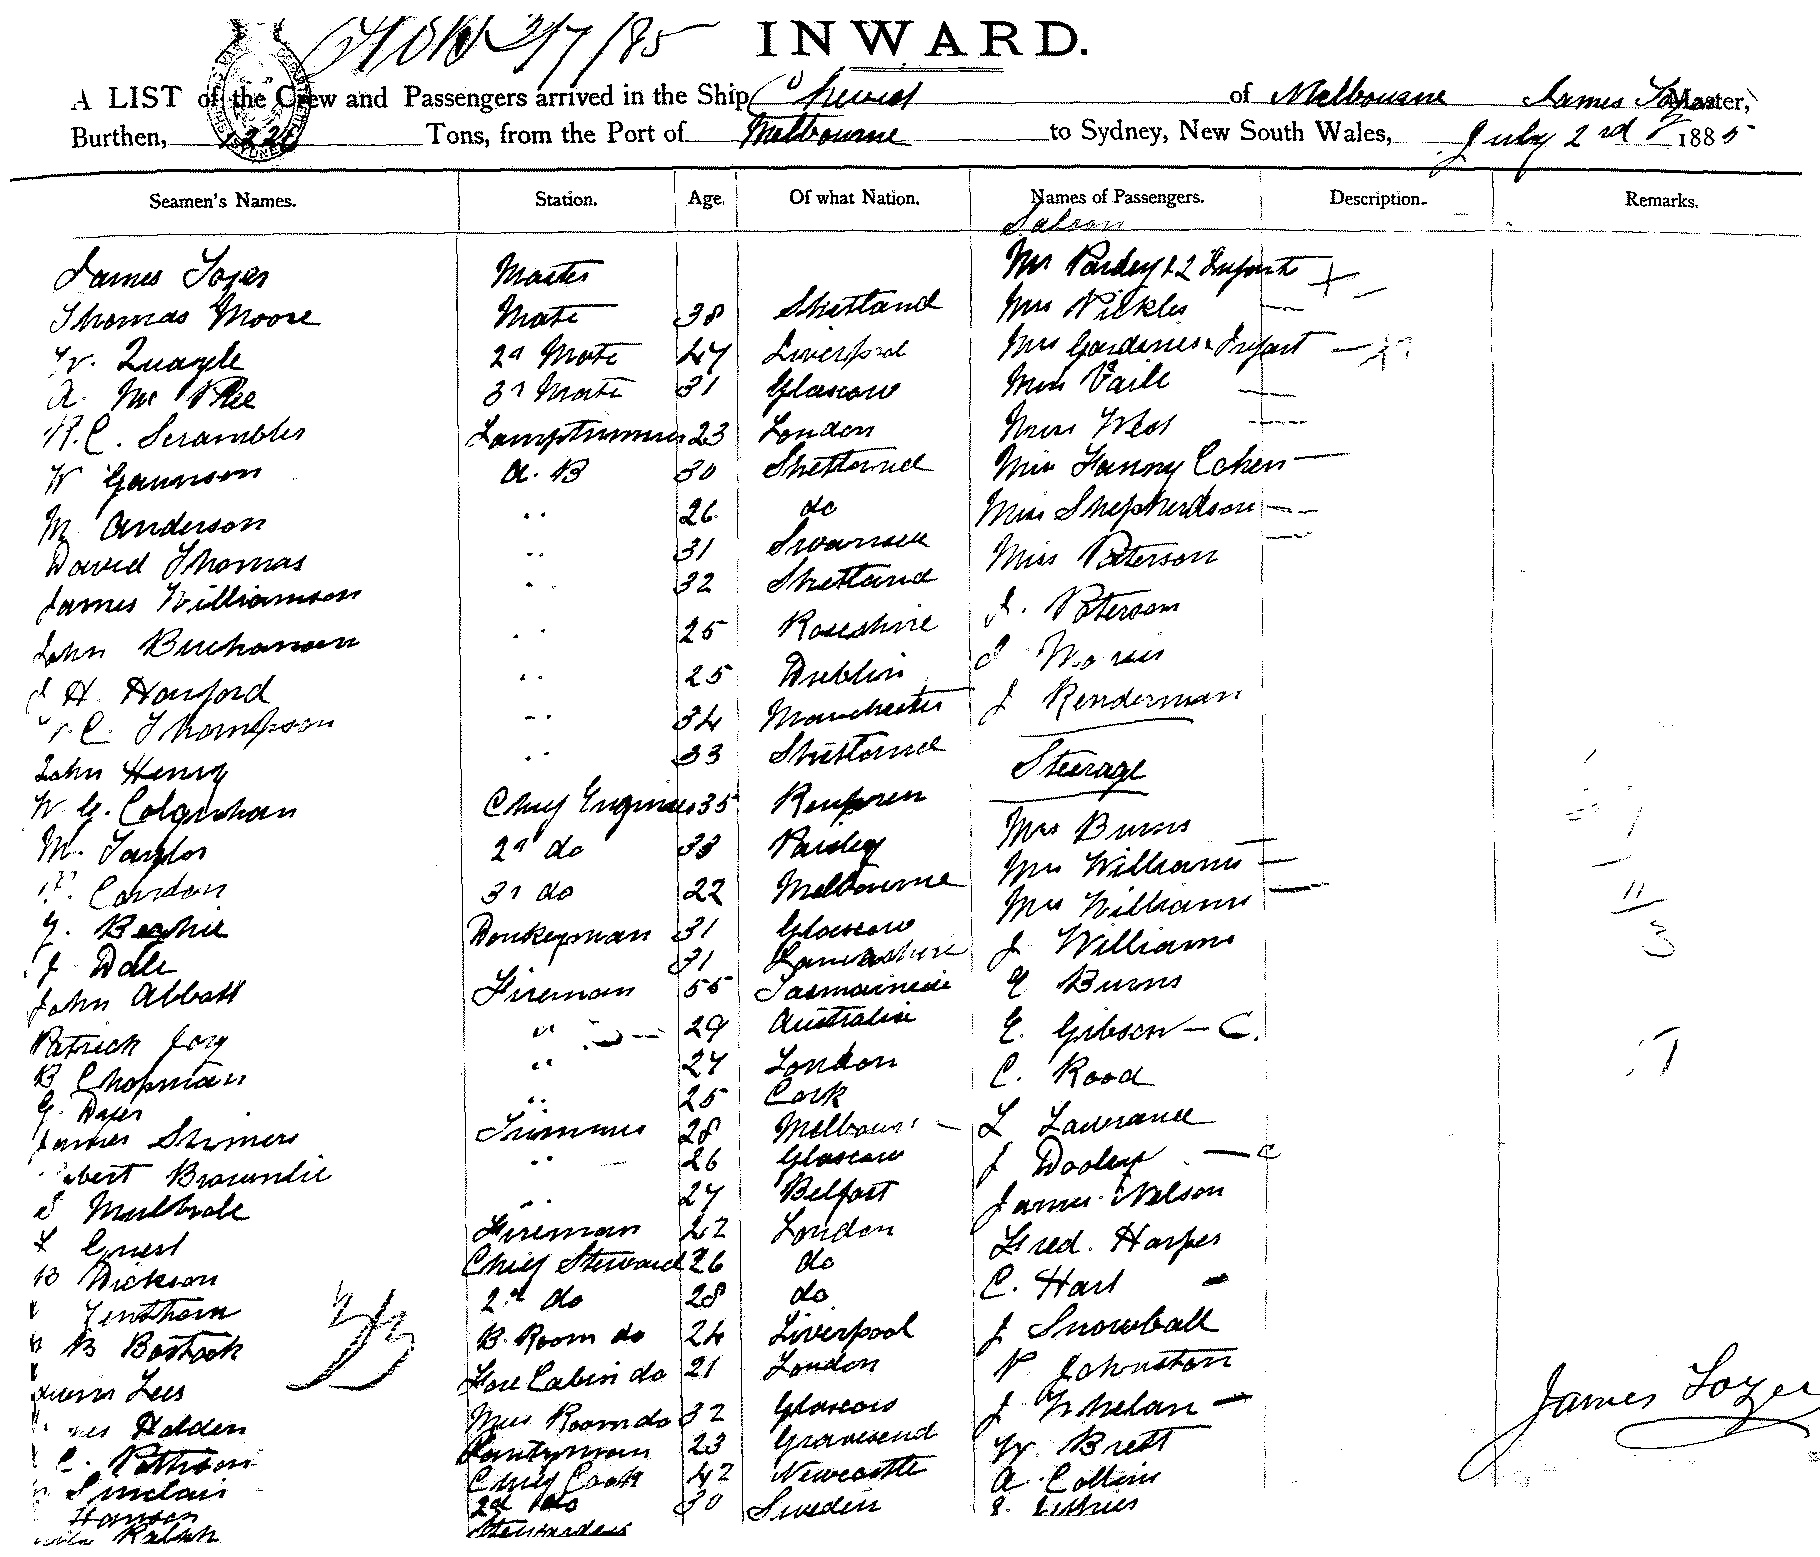 2/7/85
INWARD.
A LIST of the Crew and Passengers arrived in the Ship Cheviot of Melbourne James Tozer Master,
Burthen, 1226 Tons, from the Port of Melbourne to Sydney, New South Wales, July 2nd 1885
Seamen's Names. Station. Age. Of what Nation. Names of Passengers. Description. Remarks.
Saloon
James Tozer Master Mrs Pardey & 2 Infants
Thomas Moore Mate 38 Shetland Mrs Pickles
W. Quayle 2d Mate 47 Liverpool Mrs Gardiner & Infant
A. McPhee 3d Mate 31 Glascow Miss Vaile
R.C. Scrambler Lamptrimmer 23 London Miss West
W Gaunson A.B 30 Shetland Miss Fanny Cohen
M Anderson " 26 do Miss Shepherdson
David Thomas " 31 Swansea Miss Paterson
James Williamson " 32 Shetland J. Paterson
John Buchanan " 25 Rosshire J Morris
J H Harford " 25 Dublin J Renderman
C. Thompson " 34 Manchester
John Henry " 33 Shetland Steerage
W. G. Colquhoun Chief Engineer 35 Renfrew Mrs Burns
M. Taylor 2d do 33 Paisley Mrs Williams
Candon 3d do 22 Melbourne Mrs Williams
G. Donkeyman 31 Glascow J Williams
J Dale 31 Lancashire E Burns
John Abbott Fireman 55 E. Gibson - C.
Patrick Joy " 29 Australia C. Rood
B Chapman " 27 London L Lawrance
G. Dyer " 25 Cork J Dooley - c
James Shimers Trimmer 28 Melbourne James Nelson
Robert Brownlie " 26 Glascow Fred. Harper
S " 27 Belfast C. Hart
Guest Fireman 22 London J Snowball
B Dickson Chief Steward 26 do P Johnston
Yentham 2nd do 28 do J Whelan
B Bostock B. Room do 24 Liverpool W. Brett
Lees Fore Cabin do 21 London A Collins
Holden Mess Room do 32 Glascow
C. Pattison Pantryman 23 Gravesend
Sinclair Chief Cook 42 Newcastle
Hansen 2d do 30 Sweden
Ralph Stewardess
James Tozer